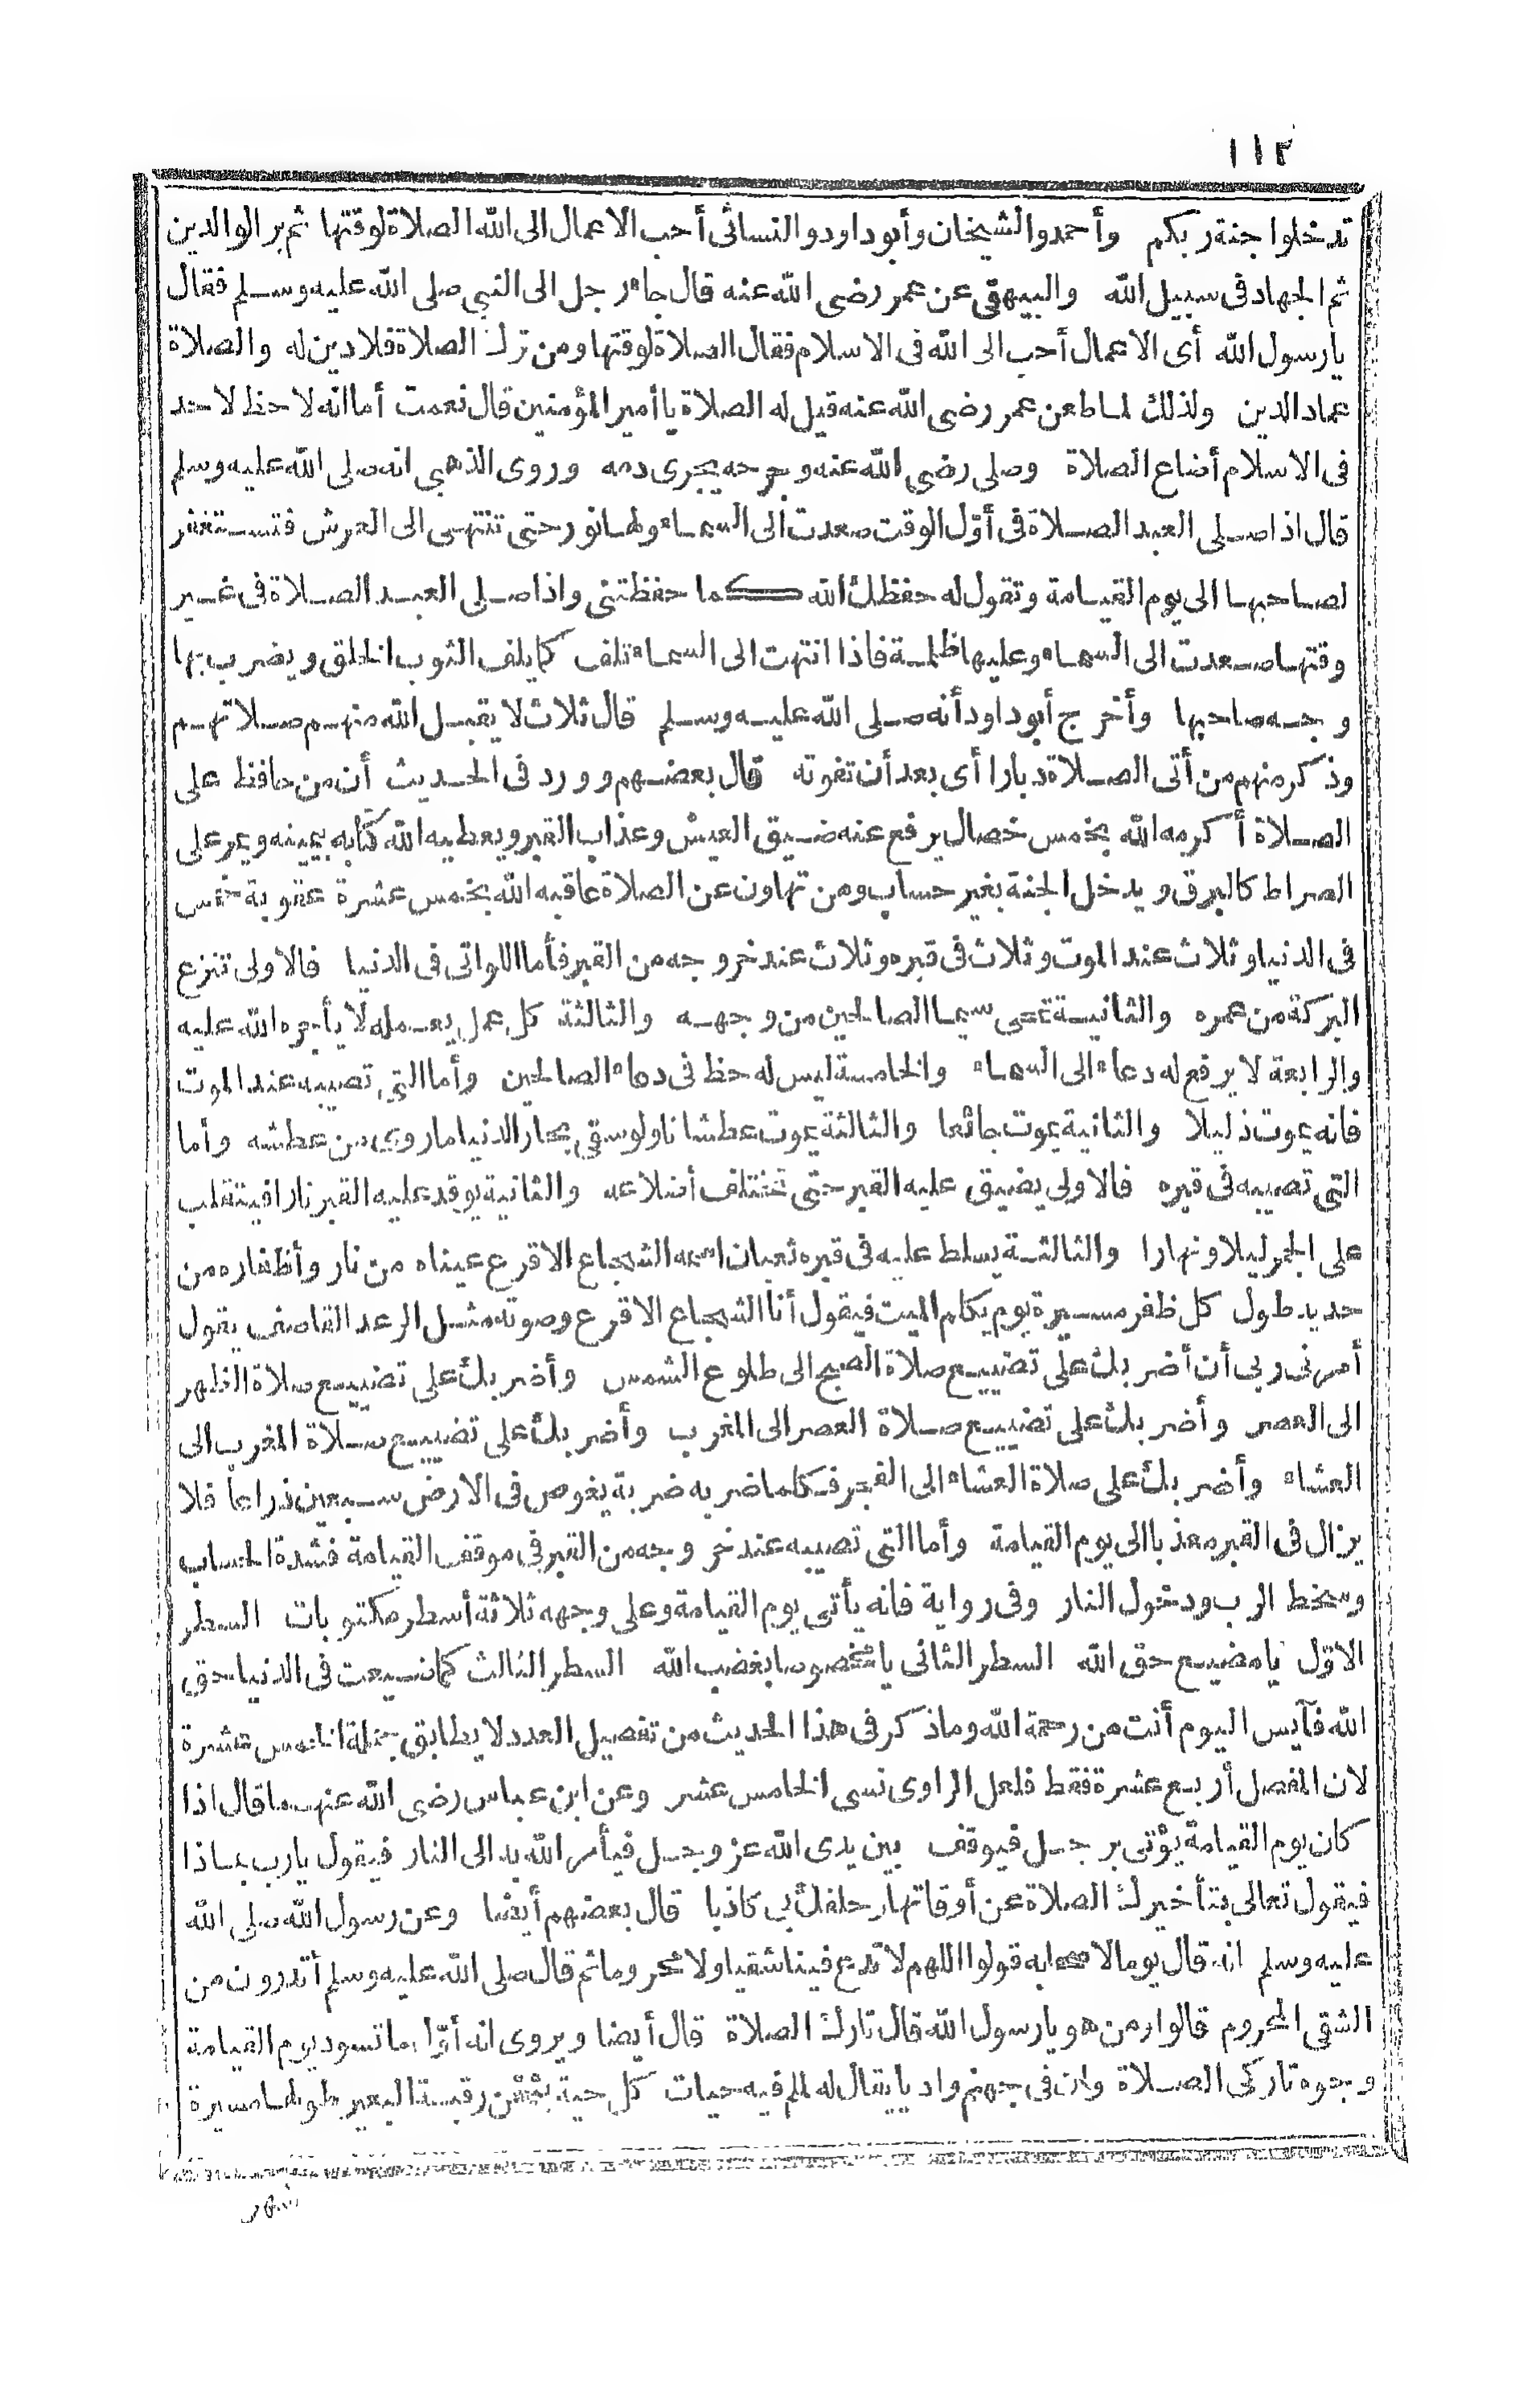 ١١٢
تدخلوا جنة ربكم وأحمد والشيخان وأبو داود والنسائى أحب الاعمال الى الله الصلاة لوقتها ثم بر الوالدين
ثم الجهاد فى سبيل الله والبيهقى عن عمر رضى الله عنه قال جاء رجل الى النبى صلى الله عليه وسلم فقال
يا رسول الله أى الاعمال أحب الى الله فى الاسلام فقال الصلاة لوقتها ومن ترك الصلاة فلا دين له والصلاة
عماد الدين ولذلك لما طعن عمر رضى الله عنه قيل له الصلاة يا أمير المؤمنين قال نعمت أما انه لا حظ لاحد
فى الاسلام أضاع الصلاة وصلى رضى الله عنه وجرحه يجرى دمه وروى الذهبى انه صلى الله عليه وسلم
قال اذا صلى العبد الصلاة فى أول الوقت صعدت الى السماء ولها نور حتى تنتهى الى العرش فتستغفر
لصاحبها الى يوم القيامة وتقول له حفظك الله كما حفظتنى واذا صلى العبد الصلاة فى غير
وقتها صعدت الى السماء وعليها ظلمة فاذا انتهت الى السماء تلف كما يلف الثوب الخلق ويضرب بها
وجه صاحبها وأخرج أبو داود أنه صلى الله عليه وسلم قال ثلاث لا يقبل الله منهم صلاتهم
وذكر منهم من أتى الصلاة دبارا أى بعد أن تفوته قال بعضهم وورد فى الحديث أن من حافظ على
الصلاة أكرمه الله بخمس خصال يرفع عنه ضيق العيش وعذاب القبر ويعطيه الله كتابه بيمينه ويمر على
الصراط كالبرق ويدخل الجنة بغير حساب ومن تهاون عن الصلاة عاقبه الله بخمس عشرة عقوبة خمس
فى الدنيا وثلاث عند الموت وثلاث فى قبره وثلاث عند خروجه من القبر فأما اللواتى فى الدنيا فالاولى تنزع
البركة من عمره والثانية تمحى سيما الصالحين من وجهه والثالثة كل عمل يعمله لا يأجره الله عليه
والرابعة لا يرفع له دعاء الى السماء والخامسة ليس له حظ فى دعاء الصالحين وأما التى تصيبه عند الموت
فانه يموت ذليلا والثانية يموت جائعا والثالثة يموت عطشانا ولو سقى بحار الدنيا ما روى من عطشه وأما
التى تصيبه فى قبره فالاولى يضيق عليه القبر حتى تختلف أضلاعه والثانية يوقد عليه القبر نارا فيتقلب
على الجمر ليلا ونهارا والثالثة يسلط عليه فى قبره ثعبان اسمه الشجاع الاقرع عيناه من نار وأظفاره من
حديد طول كل ظفر مسيرة يوم يكلم الميت فيقول أنا الشجاع الاقرع وصوته مثل الرعد القاصف يقول
أمرنى ربى أن أضربك على تضييع صلاة الصبح الى طلوع الشمس وأضربك على تضييع صلاة الظهر
الى العصر وأضربك على تضييع صلاة العصر الى المغرب وأضربك على تضييع صلاة المغرب الى
العشاء وأضربك على صلاة العشاء الى الفجر فكلما ضربه ضربة يغوص فى الارض سبعين ذراعا فلا
يزال فى القبر معذبا الى يوم القيامة وأما التى تصيبه عند خروجه من القبر فى موقف القيامة فشدة الحساب
وسخط الرب ودخول النار وفى رواية فانه يأتى يوم القيامة وعلى وجهه ثلاثة أسطر مكتوبات السطر
الاول يا مضيع حق الله السطر الثانى يا مخصوصا بغضب الله السطر الثالث كما ضيعت فى الدنيا حق
الله فآيس اليوم أنت من رحمة الله وما ذكر فى هذا الحديث من تفصيل العدد لا يطابق جملة الخمس عشرة
لان المفصل أربع عشرة فقط فلعل الراوى نسى الخامس عشر وعن ابن عباس رضى الله عنهما قال اذا
كان يوم القيامة يؤتى برجل فيوقف بين يدى الله عز وجل فيأمر الله به الى النار فيقول يا رب بماذا
فيقول تعالى بتأخيرك الصلاة عن أوقاتها وحلفك بى كاذبا قال بعضهم أيضا وعن رسول الله صلى الله
عليه وسلم انه قال يوما لاصحابه قولوا اللهم لا تدع فينا شقيا ولا محروما ثم قال صلى الله عليه وسلم أتدرون من
الشقى المحروم قالوا ومن هو يا رسول الله قال تارك الصلاة قال أيضا ويروى انه أول ما تسود يوم القيامة
وجوه تاركى الصلاة وان فى جهنم واديا يقال له لملم فيه حيات كل حية بثخن رقبة البعير طولها مسيرة
شهر